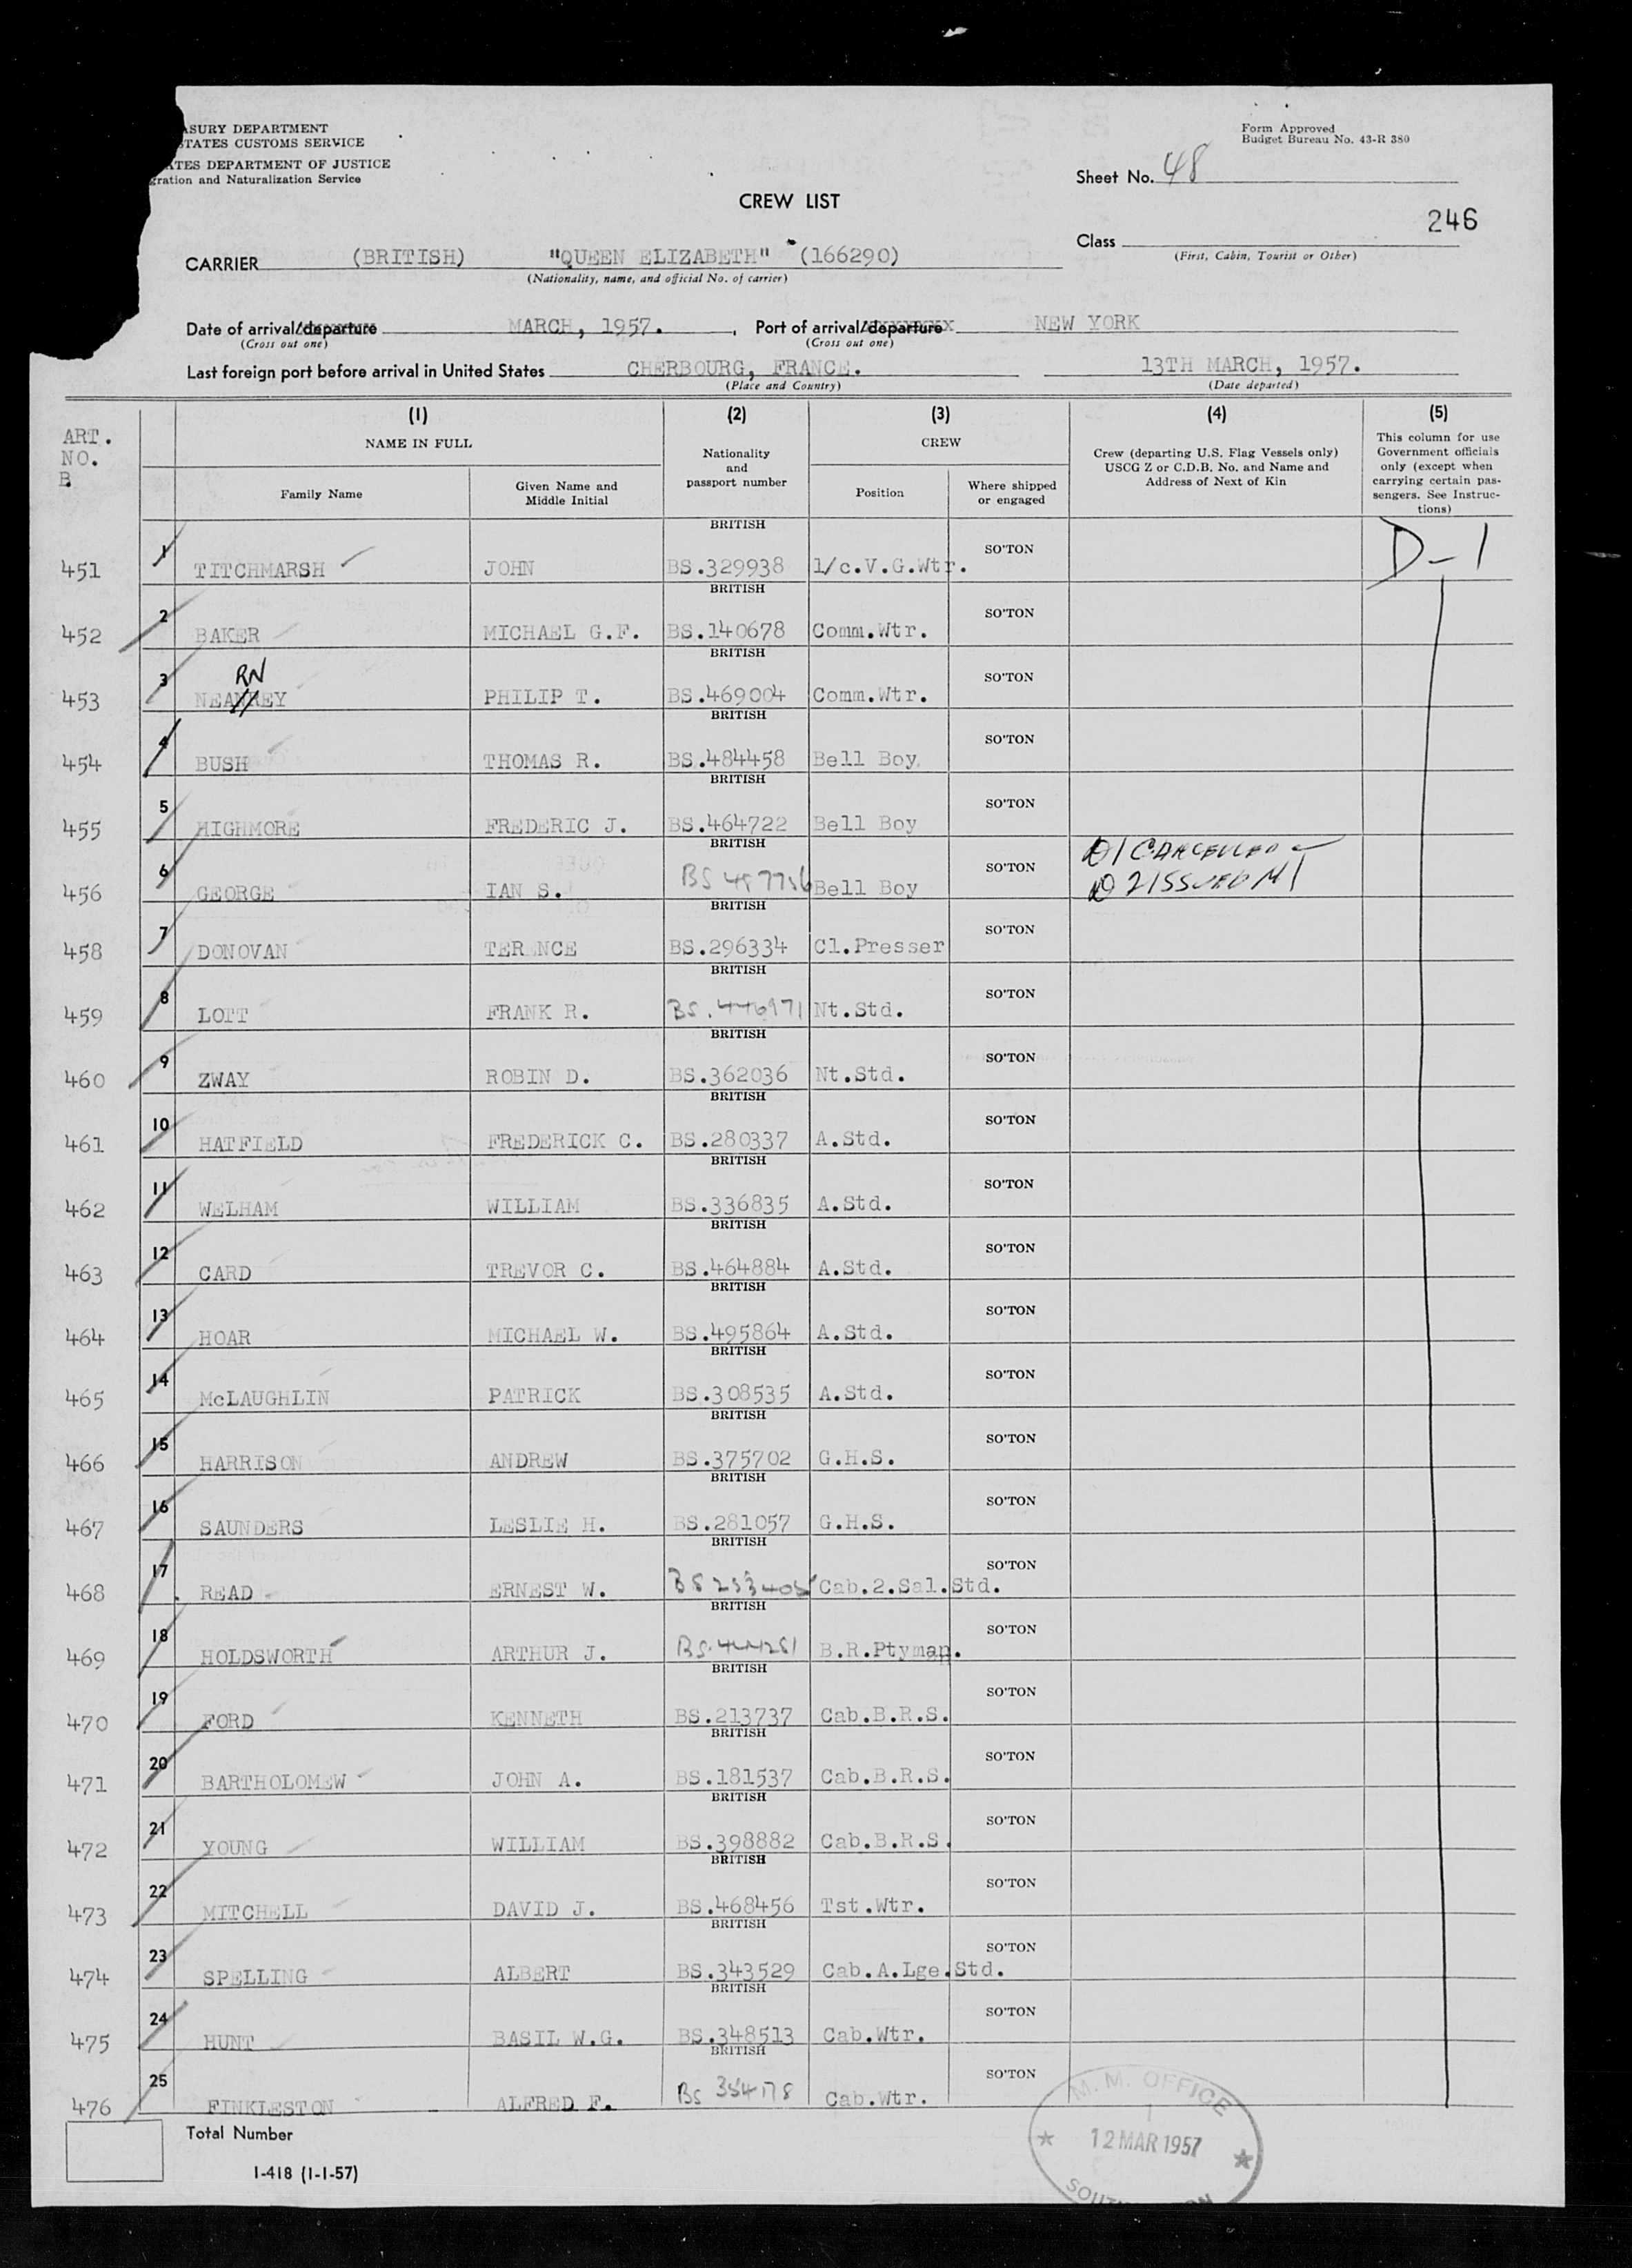 ASURY DEPARTMENT
STATES CUSTOMS SERVICE
ATES DEPARTMENT OF JUSTICE
gration and Naturalization Service
Form Approved
Budget Bureau No. 43-R 380
Sheet No. 48
CREW LIST
246
Class
(First, Cabin, Tourist or Other)
CARRIER (BRITISH) "QUEEN ELIZABETH" (166290)
(Nationality, name, and official No. of carrier)
Date of arrival/departure MARCH, 1957. , Port of arrival/departure NEW YORK
(Cross out one) (Cross out one)
Last foreign port before arrival in United States CHERBOURG, FRANCE. 13TH MARCH, 1957.
(Place and Country) (Date departed)
ART. NO. B
(1) (2) (3) (4) (5)
NAME IN FULL
Family Name
Given Name and Middle Initial
Nationality and passport number
CREW
Position
Where shipped or engaged
Crew (departing U.S. Flag Vessels only) USCG Z or C.D.B. No. and Name and Address of Next of Kin
This column for use Government officials only (except when carrying certain passengers. See Instructions)
451 1 TITCHMARSH JOHN BRITISH BS.329938 1/c.V.G.Wtr. SO'TON D-1
452 2 BAKER MICHAEL G.F. BRITISH BS.140678 Comm.Wtr. SO'TON
RN
453 3 NEAREY PHILIP T. BRITISH BS.469004 Comm.Wtr. SO'TON
454 4 BUSH THOMAS R. BRITISH BS.484458 Bell Boy SO'TON
455 5 HIGHMORE FREDERIC J. BRITISH BS.464722 Bell Boy SO'TON
456 6 GEORGE IAN S. BRITISH BS Bell Boy SO'TON D1 CANCELLED D2 ISSUED
458 7 DONOVAN TERENCE BRITISH BS.296334 Cl.Presser SO'TON
459 8 LOTT FRANK R. BRITISH BS.446971 Nt.Std. SO'TON
460 9 ZWAY ROBIN D. BRITISH BS.362036 Nt.Std. SO'TON
461 10 HATFIELD FREDERICK C. BRITISH BS.280337 A.Std. SO'TON
462 11 WELHAM WILLIAM BRITISH BS.336835 A.Std. SO'TON
463 12 CARD TREVOR C. BRITISH BS.464884 A.Std. SO'TON
464 13 HOAR MICHAEL W. BRITISH BS.495864 A.Std. SO'TON
465 14 McLAUGHLIN PATRICK BRITISH BS.308535 A.Std. SO'TON
466 15 HARRISON ANDREW BRITISH BS.375702 G.H.S. SO'TON
467 16 SAUNDERS LESLIE H. BRITISH BS.281057 G.H.S. SO'TON
468 17 READ ERNEST W. BRITISH BS Cab.2.Sal.Std. SO'TON
469 18 HOLDSWORTH ARTHUR J. BRITISH BS. B.R.Ptyman. SO'TON
470 19 FORD KENNETH BRITISH BS.213737 Cab.B.R.S. SO'TON
471 20 BARTHOLOMEW JOHN A. BRITISH BS.181537 Cab.B.R.S. SO'TON
472 21 YOUNG WILLIAM BRITISH BS.398882 Cab.B.R.S. SO'TON
473 22 MITCHELL DAVID J. BRITISH BS.468456 Tst.Wtr. SO'TON
474 23 SPELLING ALBERT BRITISH BS.343529 Cab.A.Lge.Std. SO'TON
475 24 HUNT BASIL W.G. BRITISH BS.348513 Cab.Wtr. SO'TON
476 25 FINKLESTON ALFRED F. BRITISH BS 354178 Cab.Wtr. SO'TON
Total Number
I-418 (1-1-57)
M. M. OFFICE
12 MAR 1957